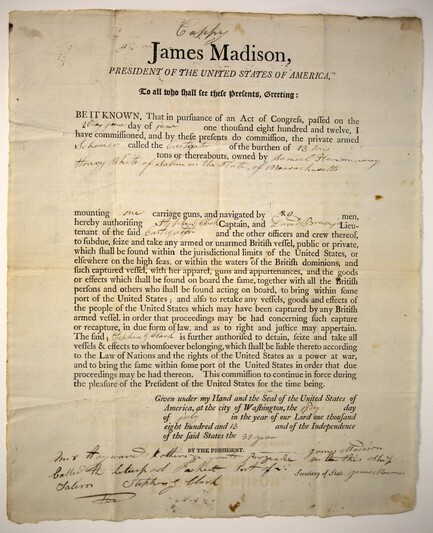 Coppy
James Madison,
PRESIDENT OF THE UNITED STATES OF AMERICA,
To all who shall see these Presents, Greeting:
BE IT KNOWN, That in pursuance of an Act of Congress, passed on the
day of june one thousand eight hundred and twelve, I
have commissioned, and by these presents do commission, the private armed
Schooner called the of the burthen of 13
tons or thereabouts, owned by Samuel
Henry White of Salem in the State of Massachusetts
mounting one carriage guns, and navigated by 20 men,
hereby authorising Captain, and Lieu-
tenant of the said and the other officers and crew thereof,
to subdue, seize and take any armed or unarmed British vessel, public or private,
which shall be found within the jurisdictional limits of the United States, or
elsewhere on the high seas, or within the waters of the British dominions, and
such captured vessel, with her apparel, guns and appurtenances, and the goods
or effects which shall be found on board the same, together with all the British
persons and others who shall be found acting on board, to bring within some
port of the United States; and also to retake any vessels, goods and effects of
the people of the United States which may have been captured by any British
armed vessel, in order that proceedings may be had concerning such capture
or recapture, in due form of law, and as to right and justice may appertain.
The said, Stephen G Clark is further authorised to detain, seize and take all
vessels & effects to whomsoever belonging, which shall be liable thereto according
to the Law of Nations and the rights of the United States as a power at war,
and to bring the same within some port of the United States in order that due
proceedings may be had thereon. This commission to continue in force during
the pleasure of the President of the United States for the time being.
Given under my Hand and the Seal of the United States of
America, at the city of Washington, the day
of July in the year of our Lord one thousand
eight hundred and 13 and of the Independence
of the said States the 38 year
BY THE PRESIDENT.
James Madison
Mr Hayward
Called the Liverpool Packet
Secretary of State, James Monroe
Salem Stephen G Clark